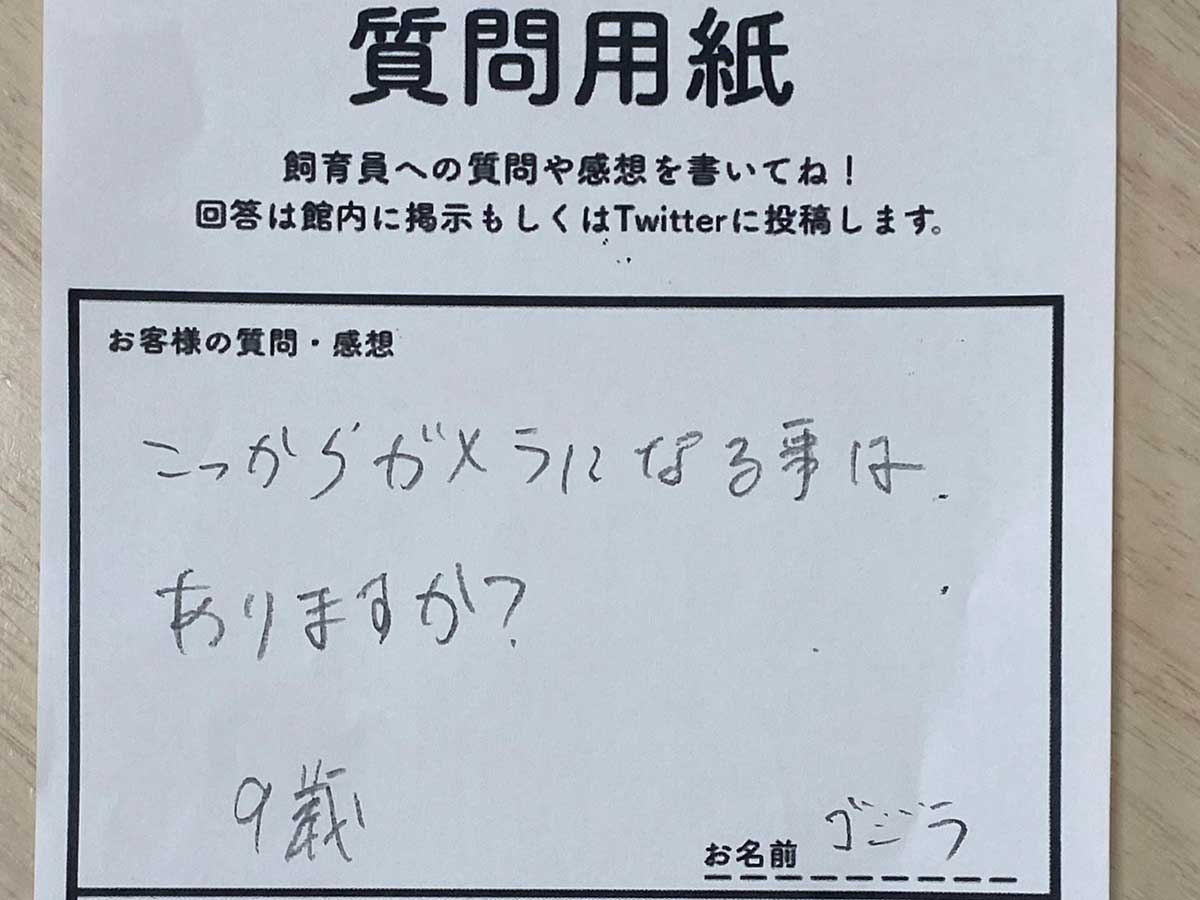 質問用紙
飼育員への質問や感想を書いてね！
回答は館内に掲示もしくはTwitterに投稿します。
お客様の質問・感想
こっからガメラになる事は
ありますか?
9歳
お名前 ゴジラ